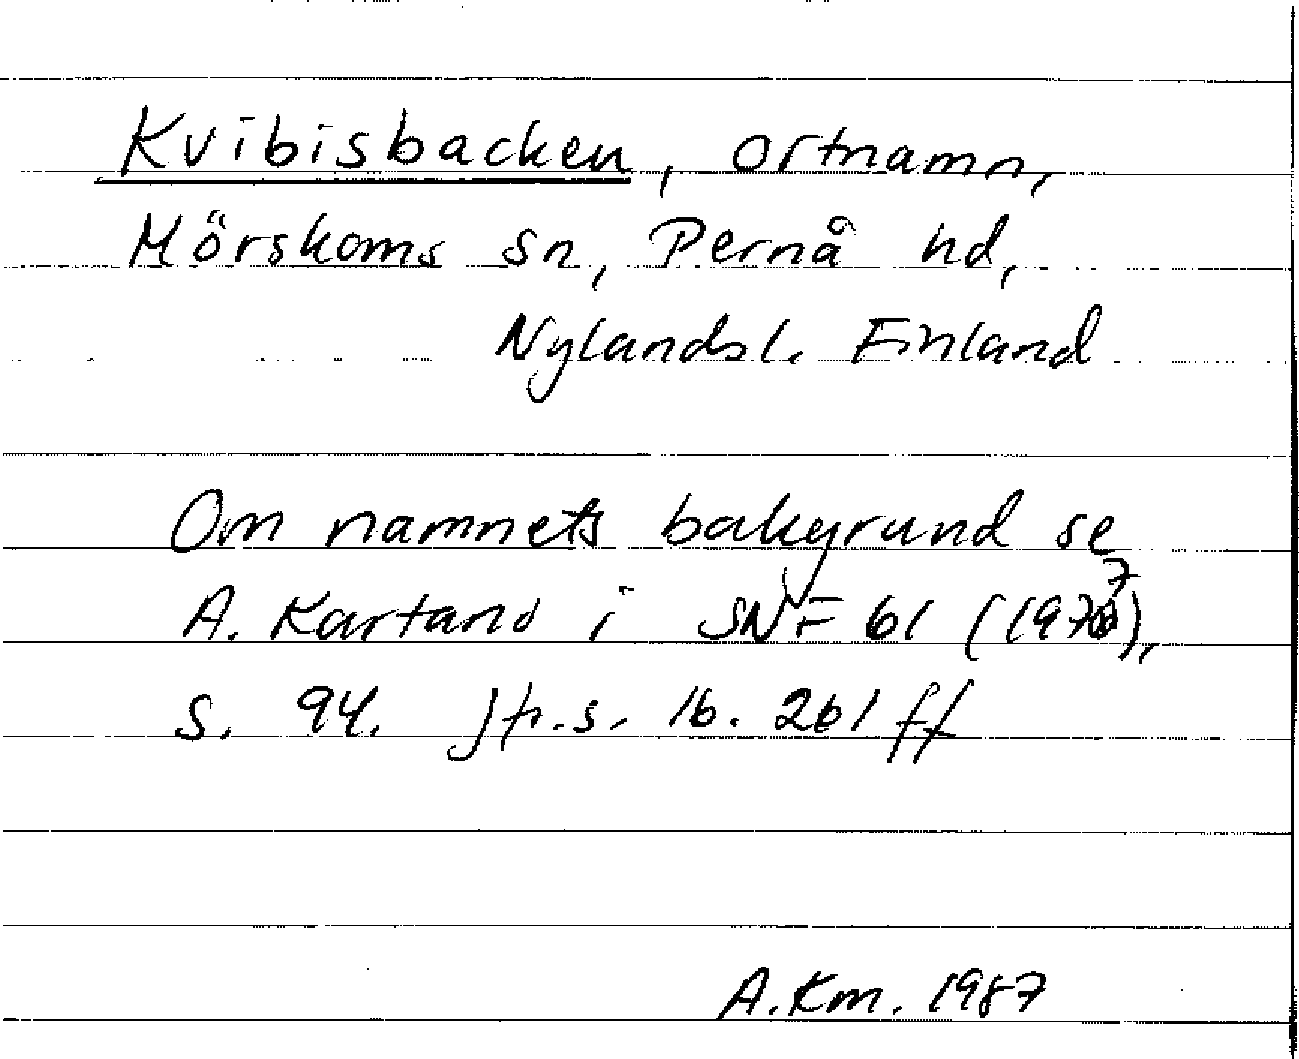 Kvibisbacken, ortnamn,
Mörskoms sn, Pernå hd,
Nylandsl. Finland
Om namnets bakgrund se
A. Karsten i SNF 61 (1977),
s. 94. Jfr. s. 16. 261 ff
A.Km. 1987